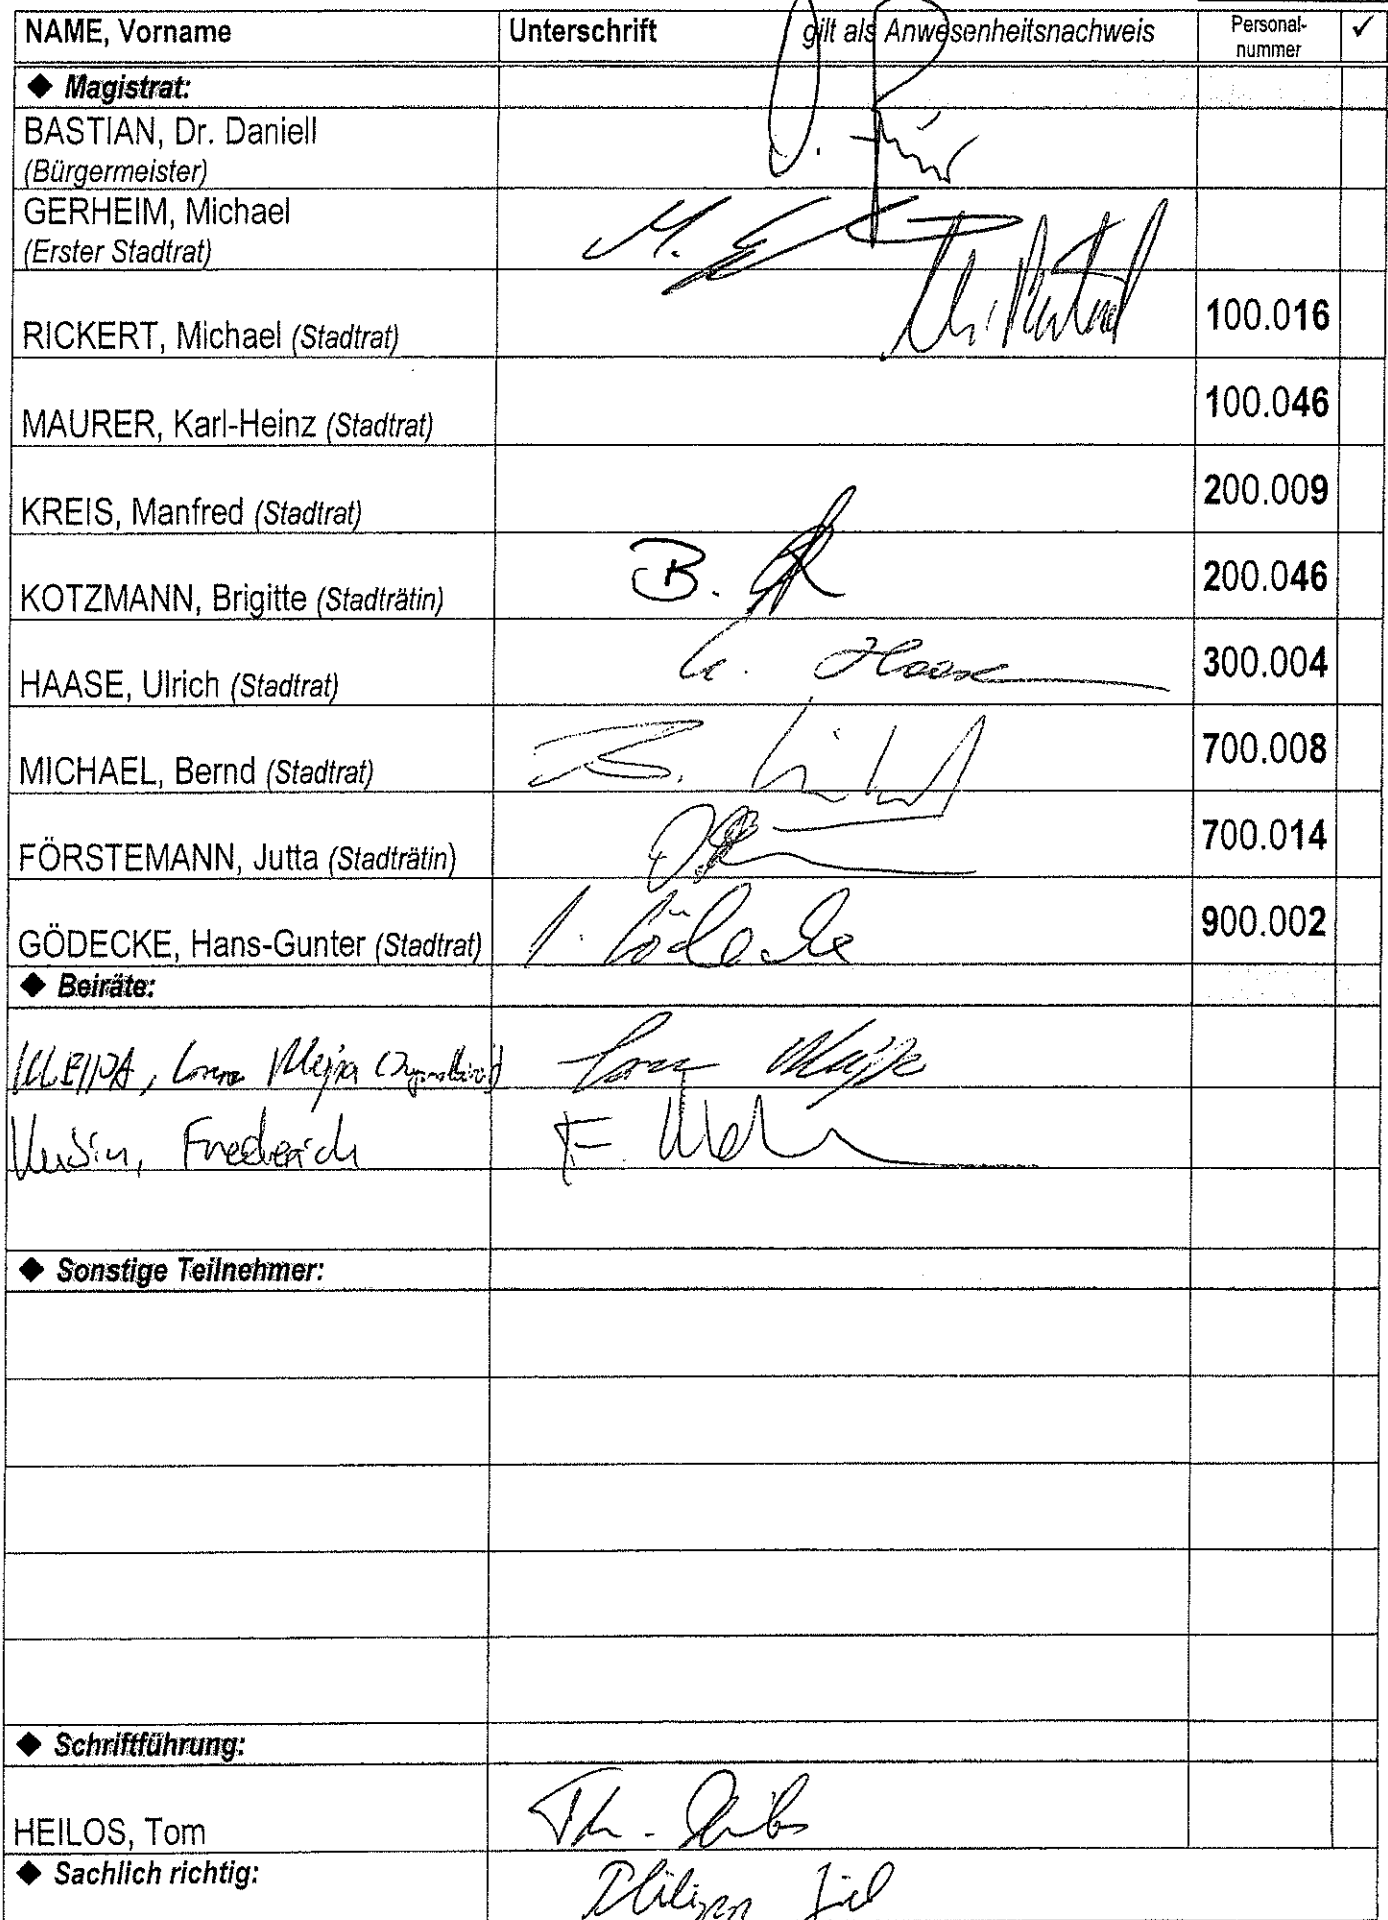 NAME, Vorname Unterschrift gilt als Anwesenheitsnachweis Personal-nummer ✓
◆ Magistrat:
BASTIAN, Dr. Daniell
(Bürgermeister)
GERHEIM, Michael M.
(Erster Stadtrat)
RICKERT, Michael (Stadtrat) 100.016
MAURER, Karl-Heinz (Stadtrat) 100.046
KREIS, Manfred (Stadtrat) 200.009
KOTZMANN, Brigitte (Stadträtin) B. 200.046
HAASE, Ulrich (Stadtrat) U. Haase 300.004
MICHAEL, Bernd (Stadtrat) B. 700.008
FÖRSTEMANN, Jutta (Stadträtin) 700.014
GÖDECKE, Hans-Gunter (Stadtrat) Gödecke 900.002
◆ Beiräte:
Frederich F.
◆ Sonstige Teilnehmer:
◆ Schriftführung:
HEILOS, Tom Th. Heilos
◆ Sachlich richtig: